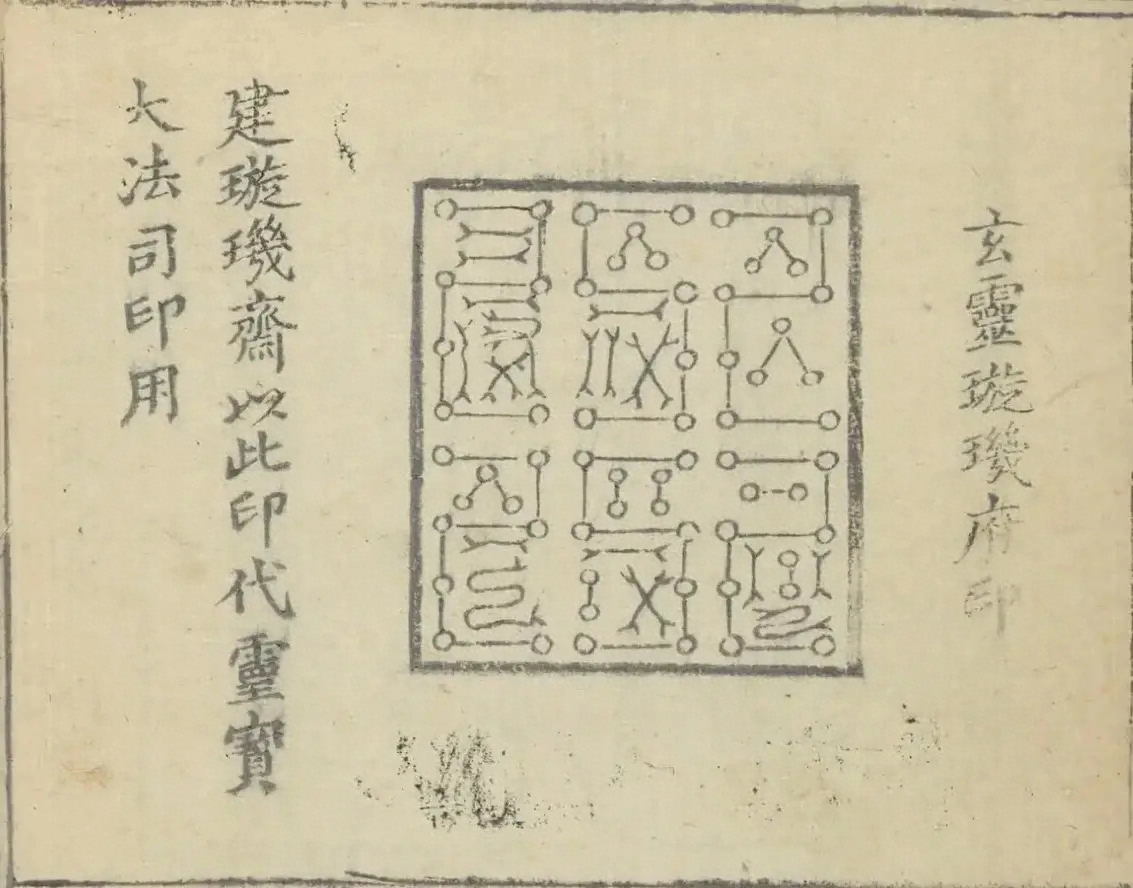 玄靈璇璣府印
建璇璣齋以此印代靈寶
大法司印用